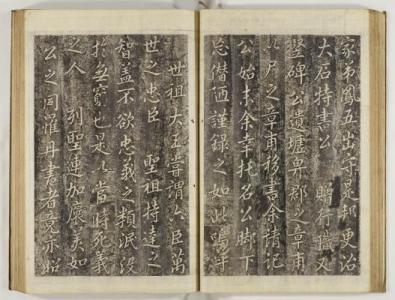 家弟鳳五出守是邦更治
大石特書公 贈行職又
豎碑公遺墟卑郡之章甫
以尸之章甫移書余請記
公始末余幸托名公脚下
忘僭迺謹錄之如此嗚呼
世祖大王嘗謂公臣萬
世之忠臣 聖祖特達之
智盖不欲忠義之類泯沒
於無窮也是以當時死義
之人 列聖連加褒美如
公之同罹丹書者竟亦昭